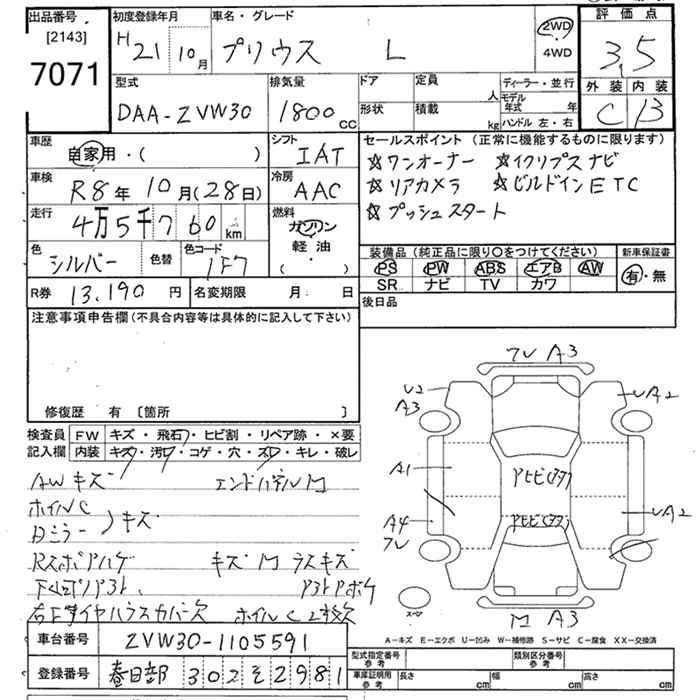 出品番号
[2143]
7071
初度登録年月
H 21 年 10 月
車名・グレード
プリウス L
2WD
4WD
評価点
3.5
外装 内装
C B
型式
DAA-ZVW30
排気量
1800 CC
ドア
形状
定員
人
積載
kg
ディーラー・並行
モデル年式 年
ハンドル 左・右
車歴
自家用・( )
シフト
IAT
車検
R8年10月(28日)
冷房
AAC
走行
4万5千760 km
燃料
ガソリン
軽油
( )
色
シルバー
色替
色コード
1F7
R券 13,190 円
名変期限 月 日
セールスポイント (正常に機能するものに限ります)
☆ワンオーナー ☆イクリプスナビ
☆リアカメラ ☆ビルドインETC
☆プッシュスタート
装備品(純正品に限り○をつけてください)
PS PW ABS エアB AW
SR ナビ TV カワ
新車保証書
有・無
後日品
注意事項申告欄(不具合内容等は具体的に記入して下さい)
修復歴 有 [箇所 ]
検査員記入欄
FW キズ・飛石・ヒビ割・リペア跡・×要
内装 キズ・汚れ・コゲ・穴・スレ・キレ・破レ
AWキズ エンドパネルM
ホイルC
Dミラー )キズ
キズM ラスキズ
ホイルC 2本欠
7U A3
U2
A3
UA2
A1
A4
7U
UA2
スペア
M A3
A-キズ E-エクボ U-凹み W-補修跡 S-サビ C-腐食 XX-交換済
車台番号 ZVW30-1105591
登録番号 春日部 302 そ 2981
型式指定番号 参考
類別区分番号 参考
車庫証明用 参考
長さ cm 幅 cm 高さ cm